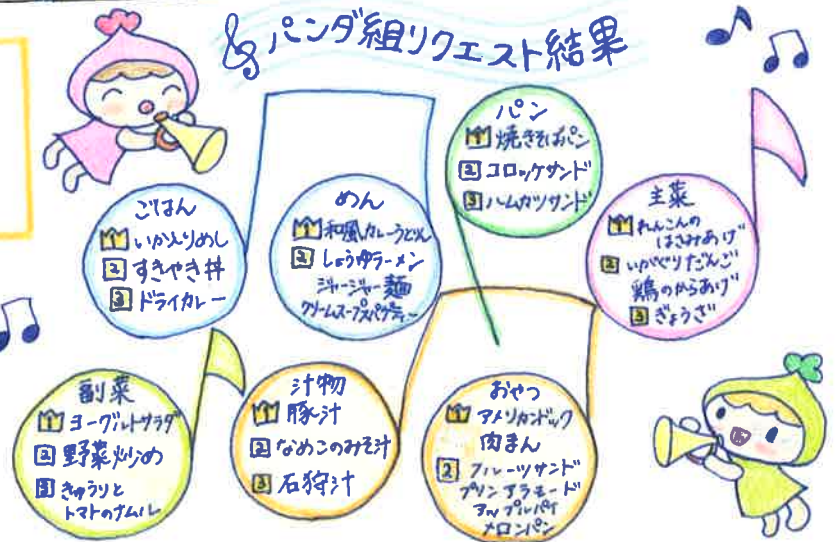 パンダ組リクエスト結果
ごはん
1 いか入りめし
2 すきやき丼
3 ドライカレー
めん
1 和風カレーうどん
2 しょうゆラーメン
ジャージャー麺
クリームスープスパゲティー
パン
1 焼きそばパン
2 コロッケサンド
3 ハムカツサンド
主菜
1 れんこんの
はさみあげ
2 いがぐりだんご
鶏のからあげ
3 ぎょうざ
副菜
1 ヨーグルトサラダ
2 野菜炒め
3 きゅうりと
トマトのナムル
汁物
1 豚汁
2 なめこのみそ汁
3 石狩汁
おやつ
1 アメリカンドック
肉まん
2 フルーツサンド
プリンアラモード
アップルパイ
メロンパン